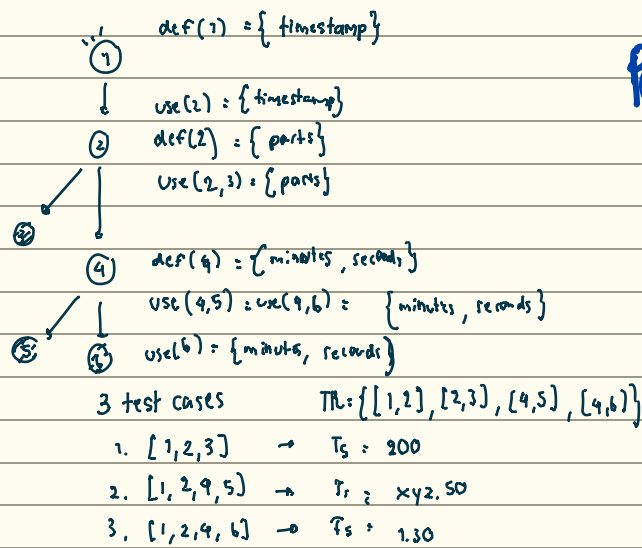 def(1) = { timestamp}
1
use(2) = {timestamp}
2 def(2) = { parts}
use(2,3) = {parts}
3
4 def(4) = {minutes, seconds}
use(4,5) = use(4,6) = {minutes, seconds}
5 6 use(6) = {minutes, seconds}
3 test cases TR = {[1,2], [2,3], [4,5], [4,6]}
1. [1,2,3] → Ts = 200
2. [1,2,4,5] → Ts = xyz.50
3. [1,2,4,6] → Ts = 1.30